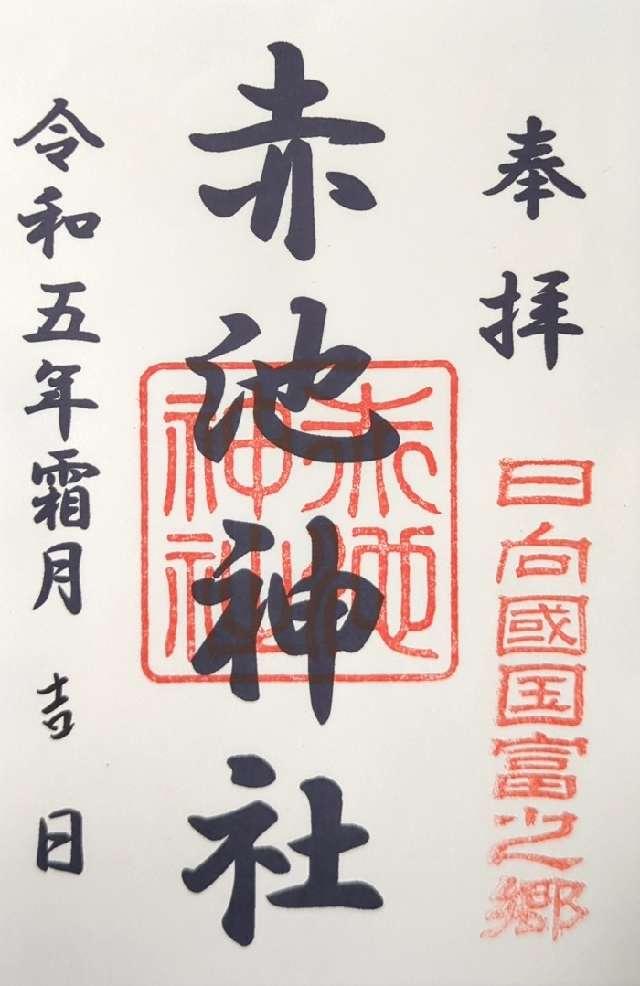 奉拝
日向國国富之郷
赤池神社
赤池神社
令和五年霜月吉日